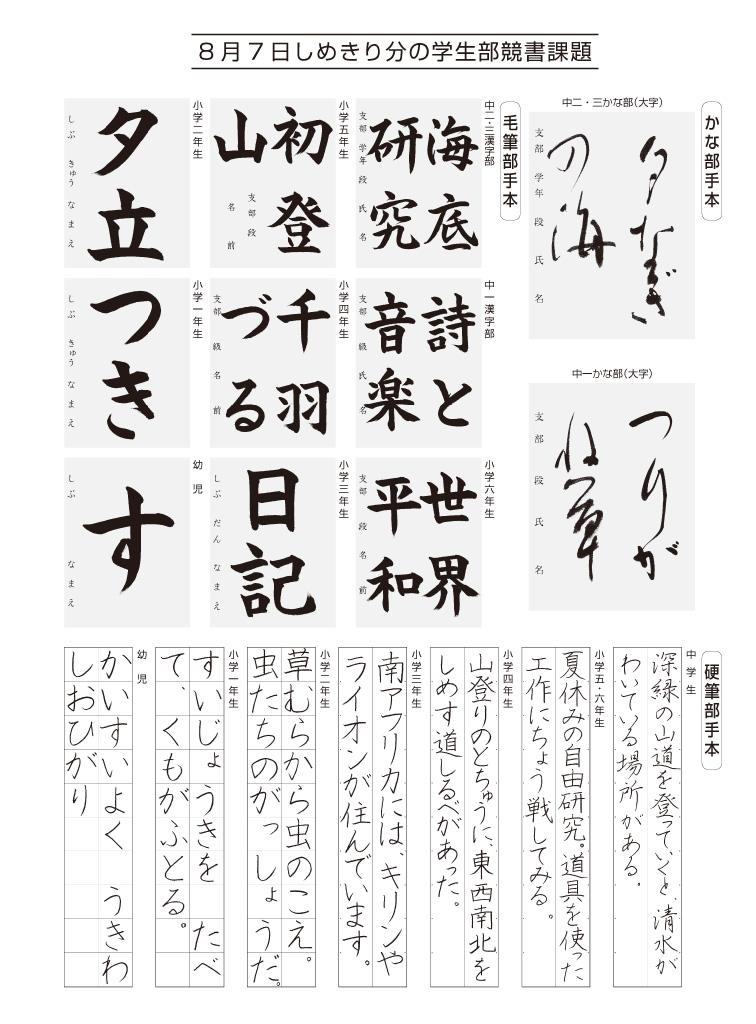 8月7日しめきり分の学生部競書課題
かな部手本
中二・三かな部(大字)
夕なぎ
の海
支部 学年 段 氏 名
中一かな部(大字)
つりが
ね草
支部 段 氏 名
毛筆部手本
中二・三漢字部
海底
研究
支部 学年 段 氏 名
中一漢字部
詩と
音楽
支部 級 氏 名
小学六年生
世界
平和
支部 段 名 前
小学五年生
初登
山
支部 段
名 前
小学四年生
千羽
づる
支部 級 名 前
小学三年生
日記
しぶ だん なまえ
小学二年生
夕立
しぶ きゅう なまえ
小学一年生
つき
しぶ きゅう なまえ
幼児
す
しぶ なまえ
硬筆部手本
中学生
深緑の山道を登っていくと、清水が
わいている場所がある。
小学五・六年生
夏休みの自由研究。道具を使った
工作にちょう戦してみる。
小学四年生
山登りのとちゅうに、東西南北を
しめす道しるべがあった。
小学三年生
南アフリカには、キリンや
ライオンが住んでいます。
小学二年生
草むらから虫のこえ。
虫たちのがっしょうだ。
小学一年生
すいじょうきを たべ
て、くもがふとる。
幼児
かいすいよく うきわ
しおひがり